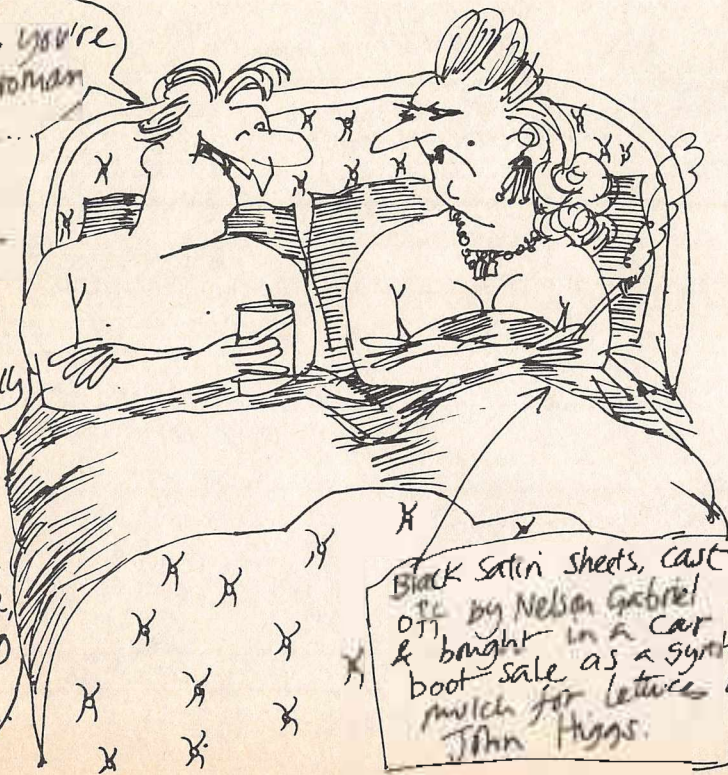 you're
woman
Black satin sheets, cast
off by Nelson Gabriel
& bought in a car
boot sale as a
mulch for lettuces
John Higgs.